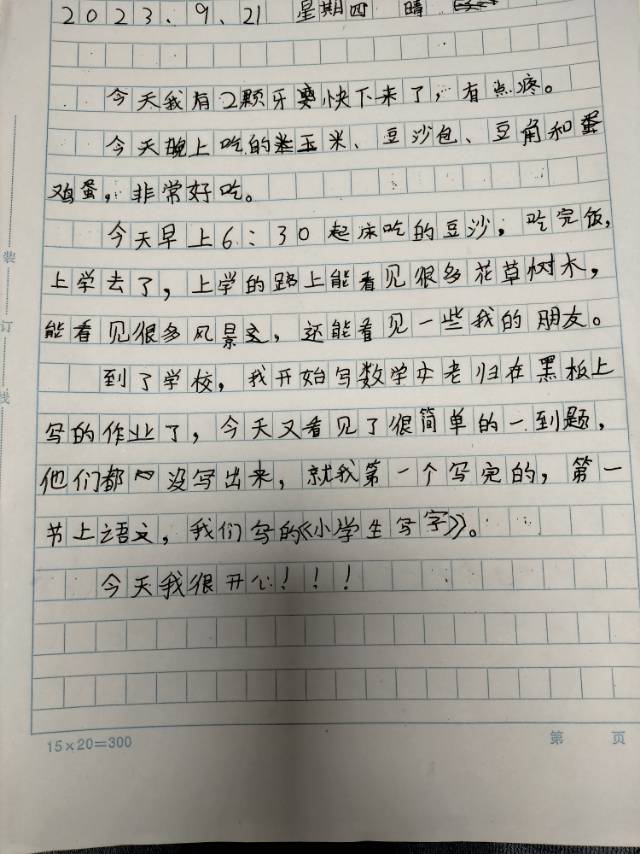 2023、9、21 星期四 晴
今天我有2颗牙要快下来了，有点疼。
今天晚上吃的蒸玉米、豆沙包、豆角和蛋
鸡蛋，非常好吃。
今天早上6：30起床吃的豆沙，吃完饭，
上学去了，上学的路上能看见很多花草树木，
能看见很多风景，还能看见一些我的朋友。
到了学校，我开始写数学老归在黑板上
写的作业了，今天又看见了很简单的一到题，
他们都没写出来，就我第一个写完的，第一
节上语文，我们写的《小学生写字》。
今天我很开心！！！
15×20=300
第 页
装
订
线